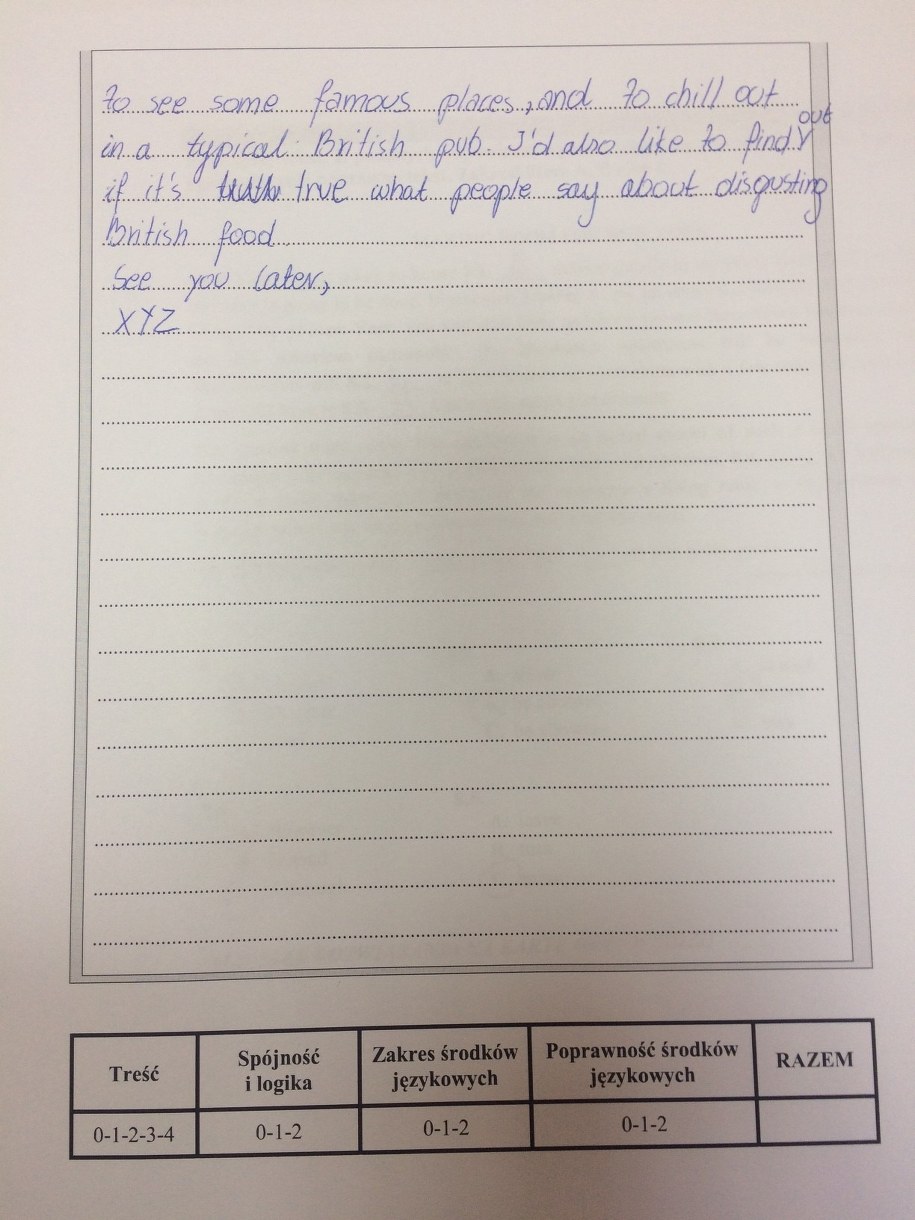 to see some famous places, and to chill out
in a typical British pub. I'd also like to find out
if it's true what people say about disgusting
British food
See you later,
XYZ
Treść Spójność i logika Zakres środków językowych Poprawność środków językowych RAZEM
0-1-2-3-4 0-1-2 0-1-2 0-1-2